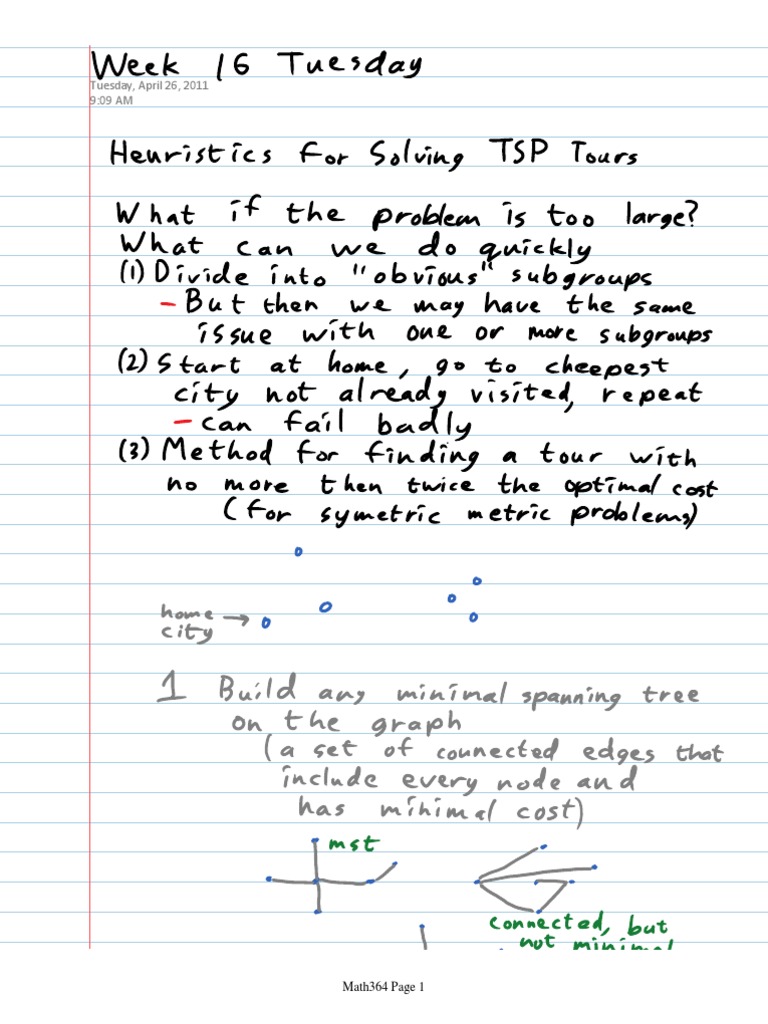 Week 16 Tuesday
Tuesday, April 26, 2011
9:09 AM
Heuristics for Solving TSP Tours
What if the problem is too large?
What can we do quickly
(1) Divide into "obvious" subgroups
- But then we may have the same
issue with one or more subgroups
(2) Start at home, go to cheepest
city not already visited, repeat
- can fail badly
(3) Method for finding a tour with
no more then twice the optimal cost
(for symetric metric problems)
home →
city
1 Build any minimal spanning tree
on the graph
(a set of connected edges that
include every node and
has minimal cost)
mst
connected, but
not minimal
Math364 Page 1